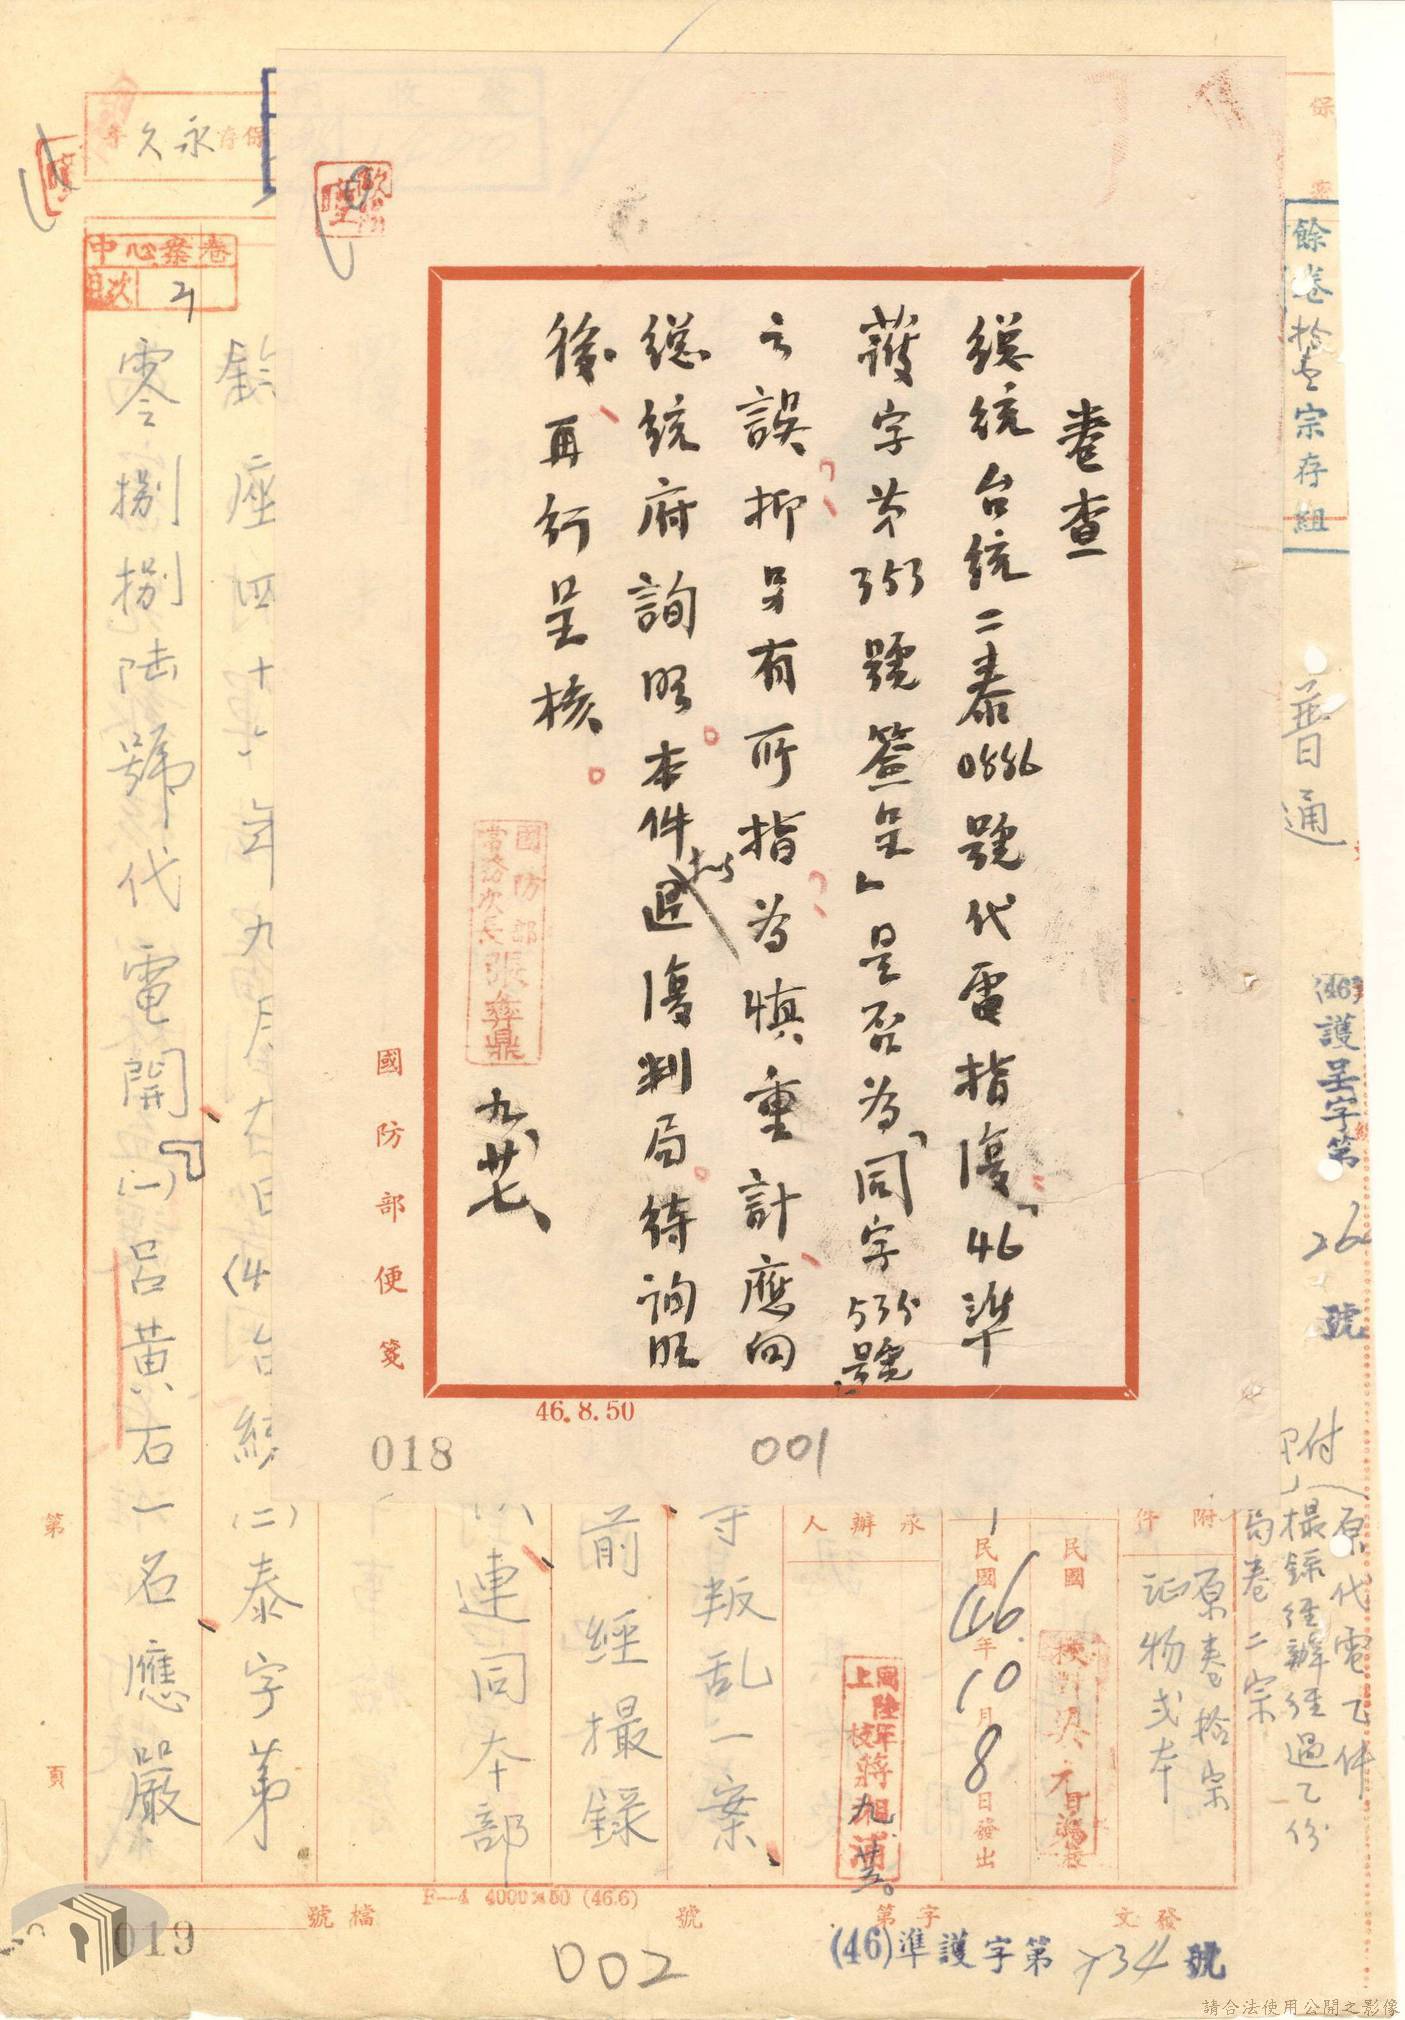 卷查
總統台統二泰0886號代電指復「46準
護字第353號簽呈」是否為「同字535號」
之誤抑另有所指為慎重計應向
總統府詢明本件擬退復判局待詢明
後再行呈核
國防部
常務次長張彝鼎
九、廿七、
國防部便箋
46.8.50
018
001
保存
永久
年
中心案卷
目次
餘卷拾壹宗存組
普通
(46)護呈字第
264
號
附
原代電乙件
撮錄經辦經過乙份
局卷二宗
附件
原卷拾宗
証物弍本
民國
民國46年10月8日發出
承辦人
國陸軍
上校蔣湘浦
九、廿五。
叛乱一案
前經撮錄
連同本部
鈞座四十六年九月
日(46)台統(二)泰字第
零捌捌陸號代電開
(一)呂黃右一名應嚴
第
頁
F—4 4000×50 (46.6)
檔號
字第
號
發文
(46)準護字第734號
019
002
請合法使用公開之影像